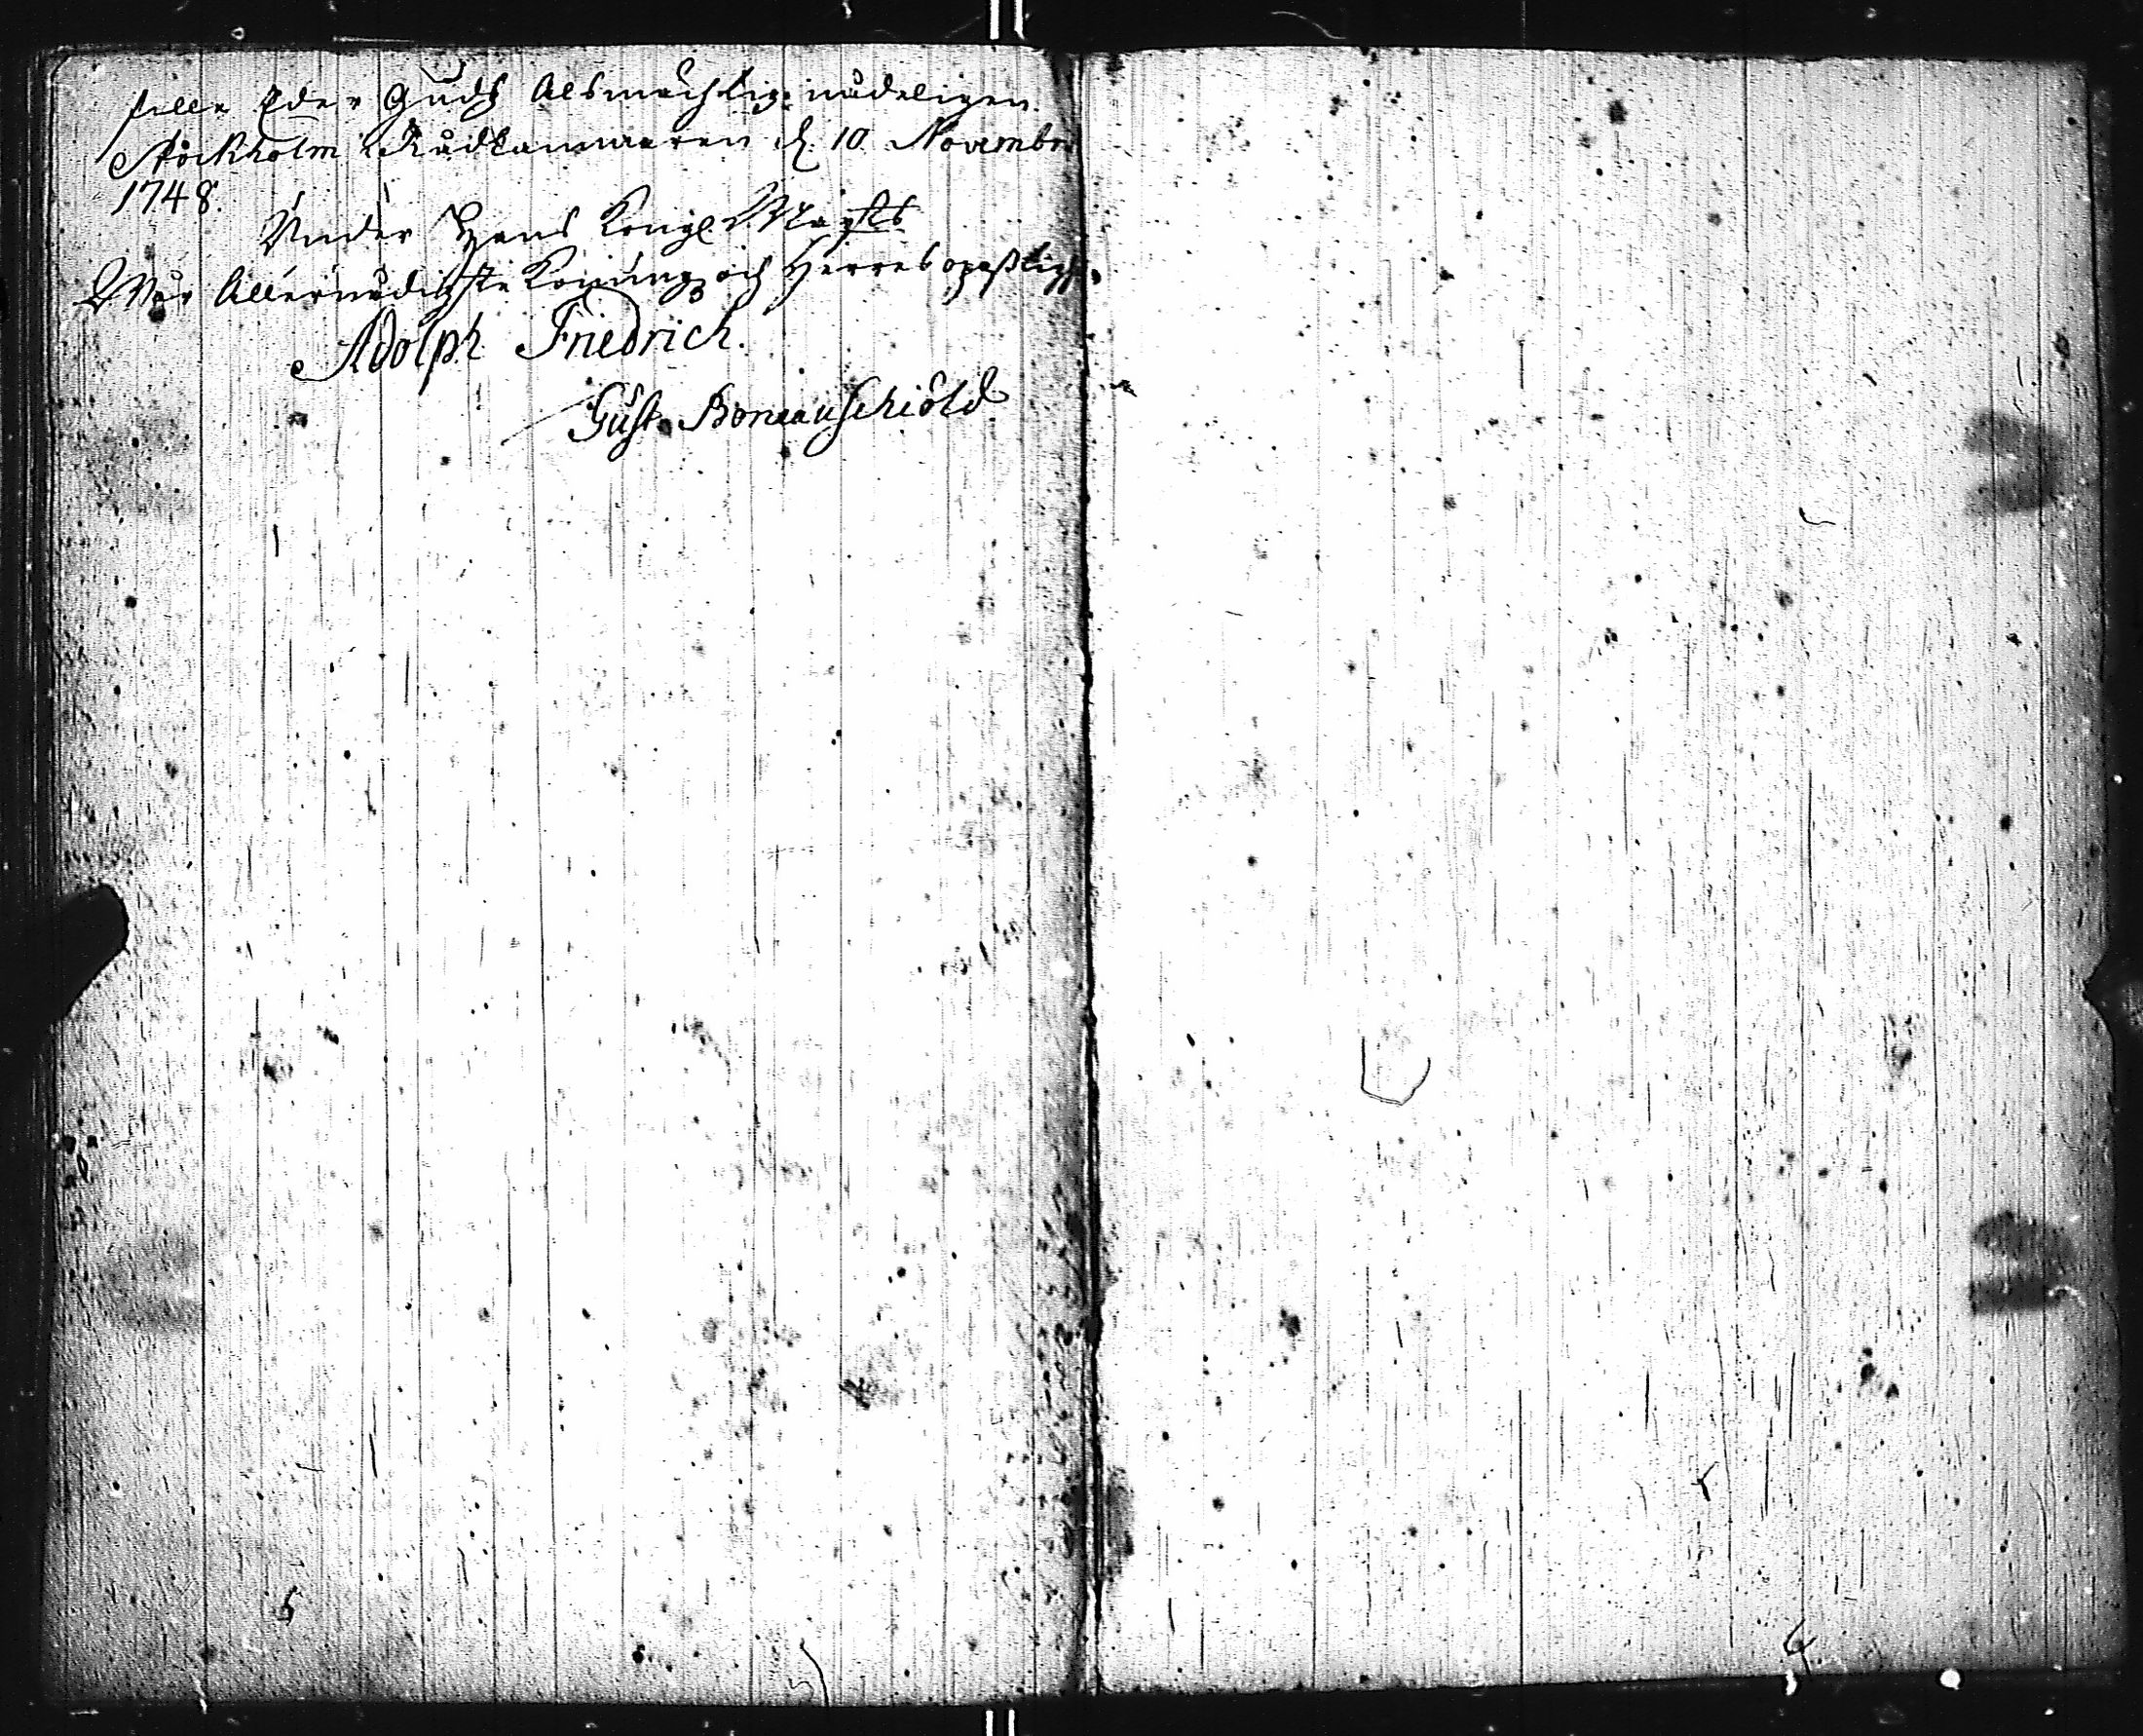 falle Eder Gudh Alsmächtig nådeligen.
Stockholm i Rådkammaren d. 10 Novembr
1748.
Under Hans Kongl. May:ts
Wår Allernådigste Konungz och Herres opaßligh:
Adolph Friedrich.
Gust. Boneauschiöld